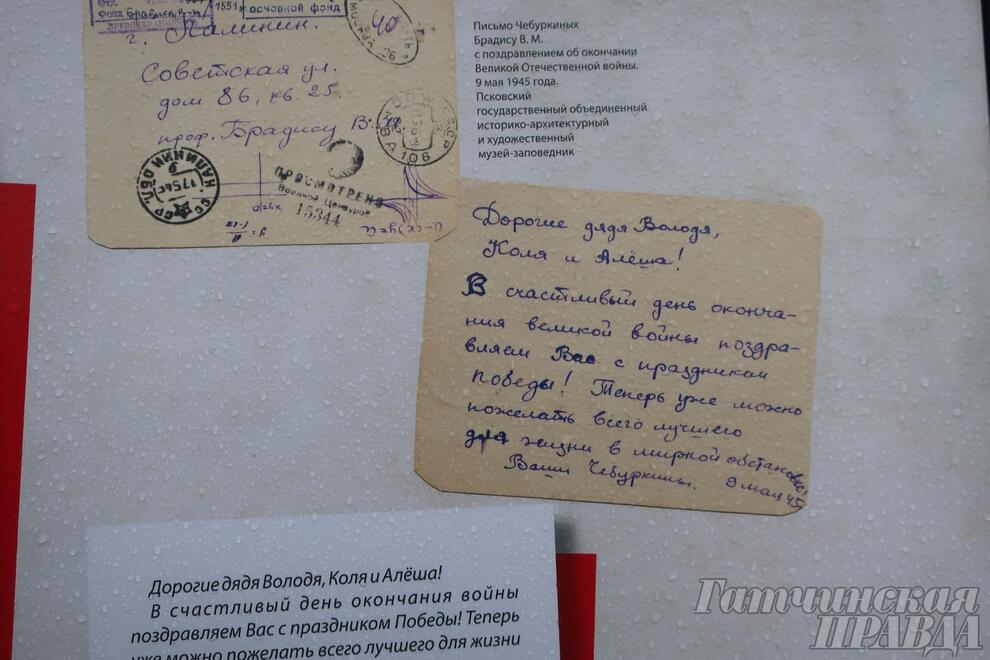 1551
основной фонд
г. Калинин.
Советская ул.
дом 86, кв. 25
проф. Брадису В. М.
ПРОСМОТРЕНО
Военной Цензурой
15344
КАЛИНИН ОБЛ.
106
Письмо Чебуркиных
Брадису В. М.
с поздравлением об окончании
Великой Отечественной войны.
9 мая 1945 года.
Псковский
государственный объединенный
историко-архитектурный
и художественный
музей-заповедник
Дорогие дядя Володя,
Коля и Алёша!
В счастливый день оконча-
ния великой войны поздра-
вляем Вас с праздником
победы! Теперь уже можно
пожелать всего лучшего
для жизни в мирной обстановке!
Ваши Чебуркины. 9 мая 45
Дорогие дядя Володя, Коля и Алёша!
В счастливый день окончания войны
поздравляем Вас с праздником Победы! Теперь
уже можно пожелать всего лучшего для жизни
Гатчинская
ПРАВДА